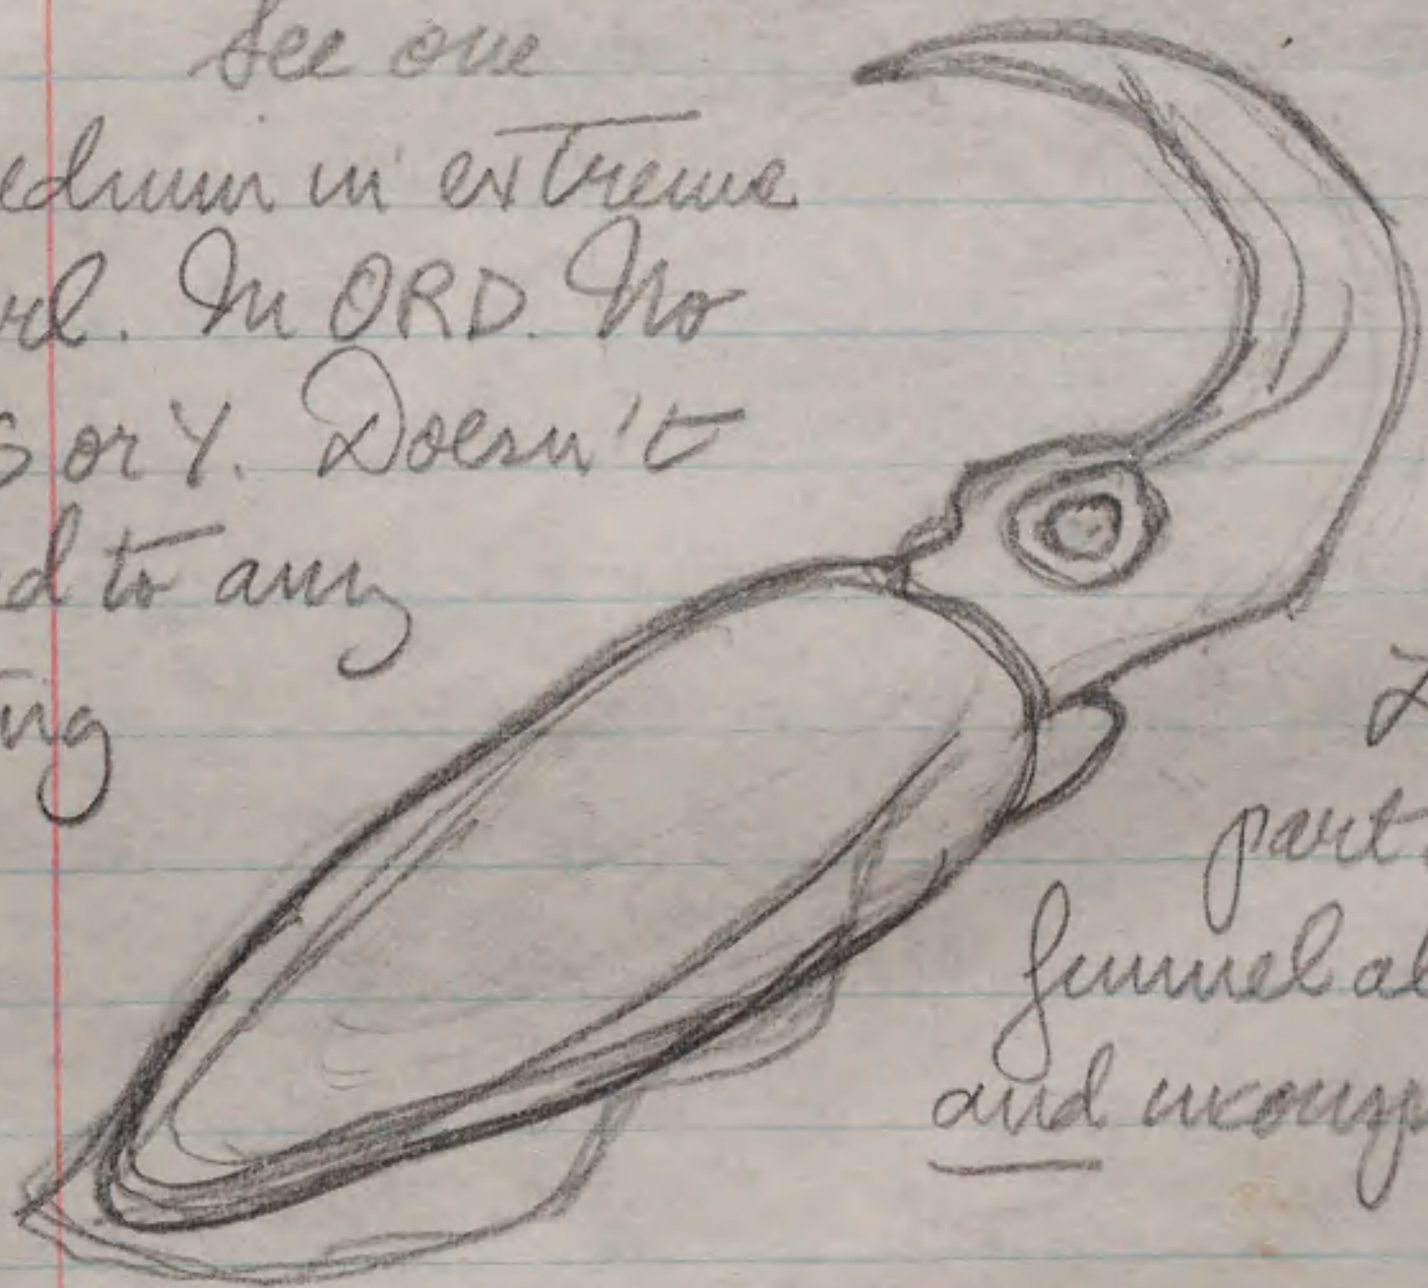 See one
edium in extreme
rl. In ORD. No
S or Y. Doesn't
d to any
ing
part
funnel al
and incomp